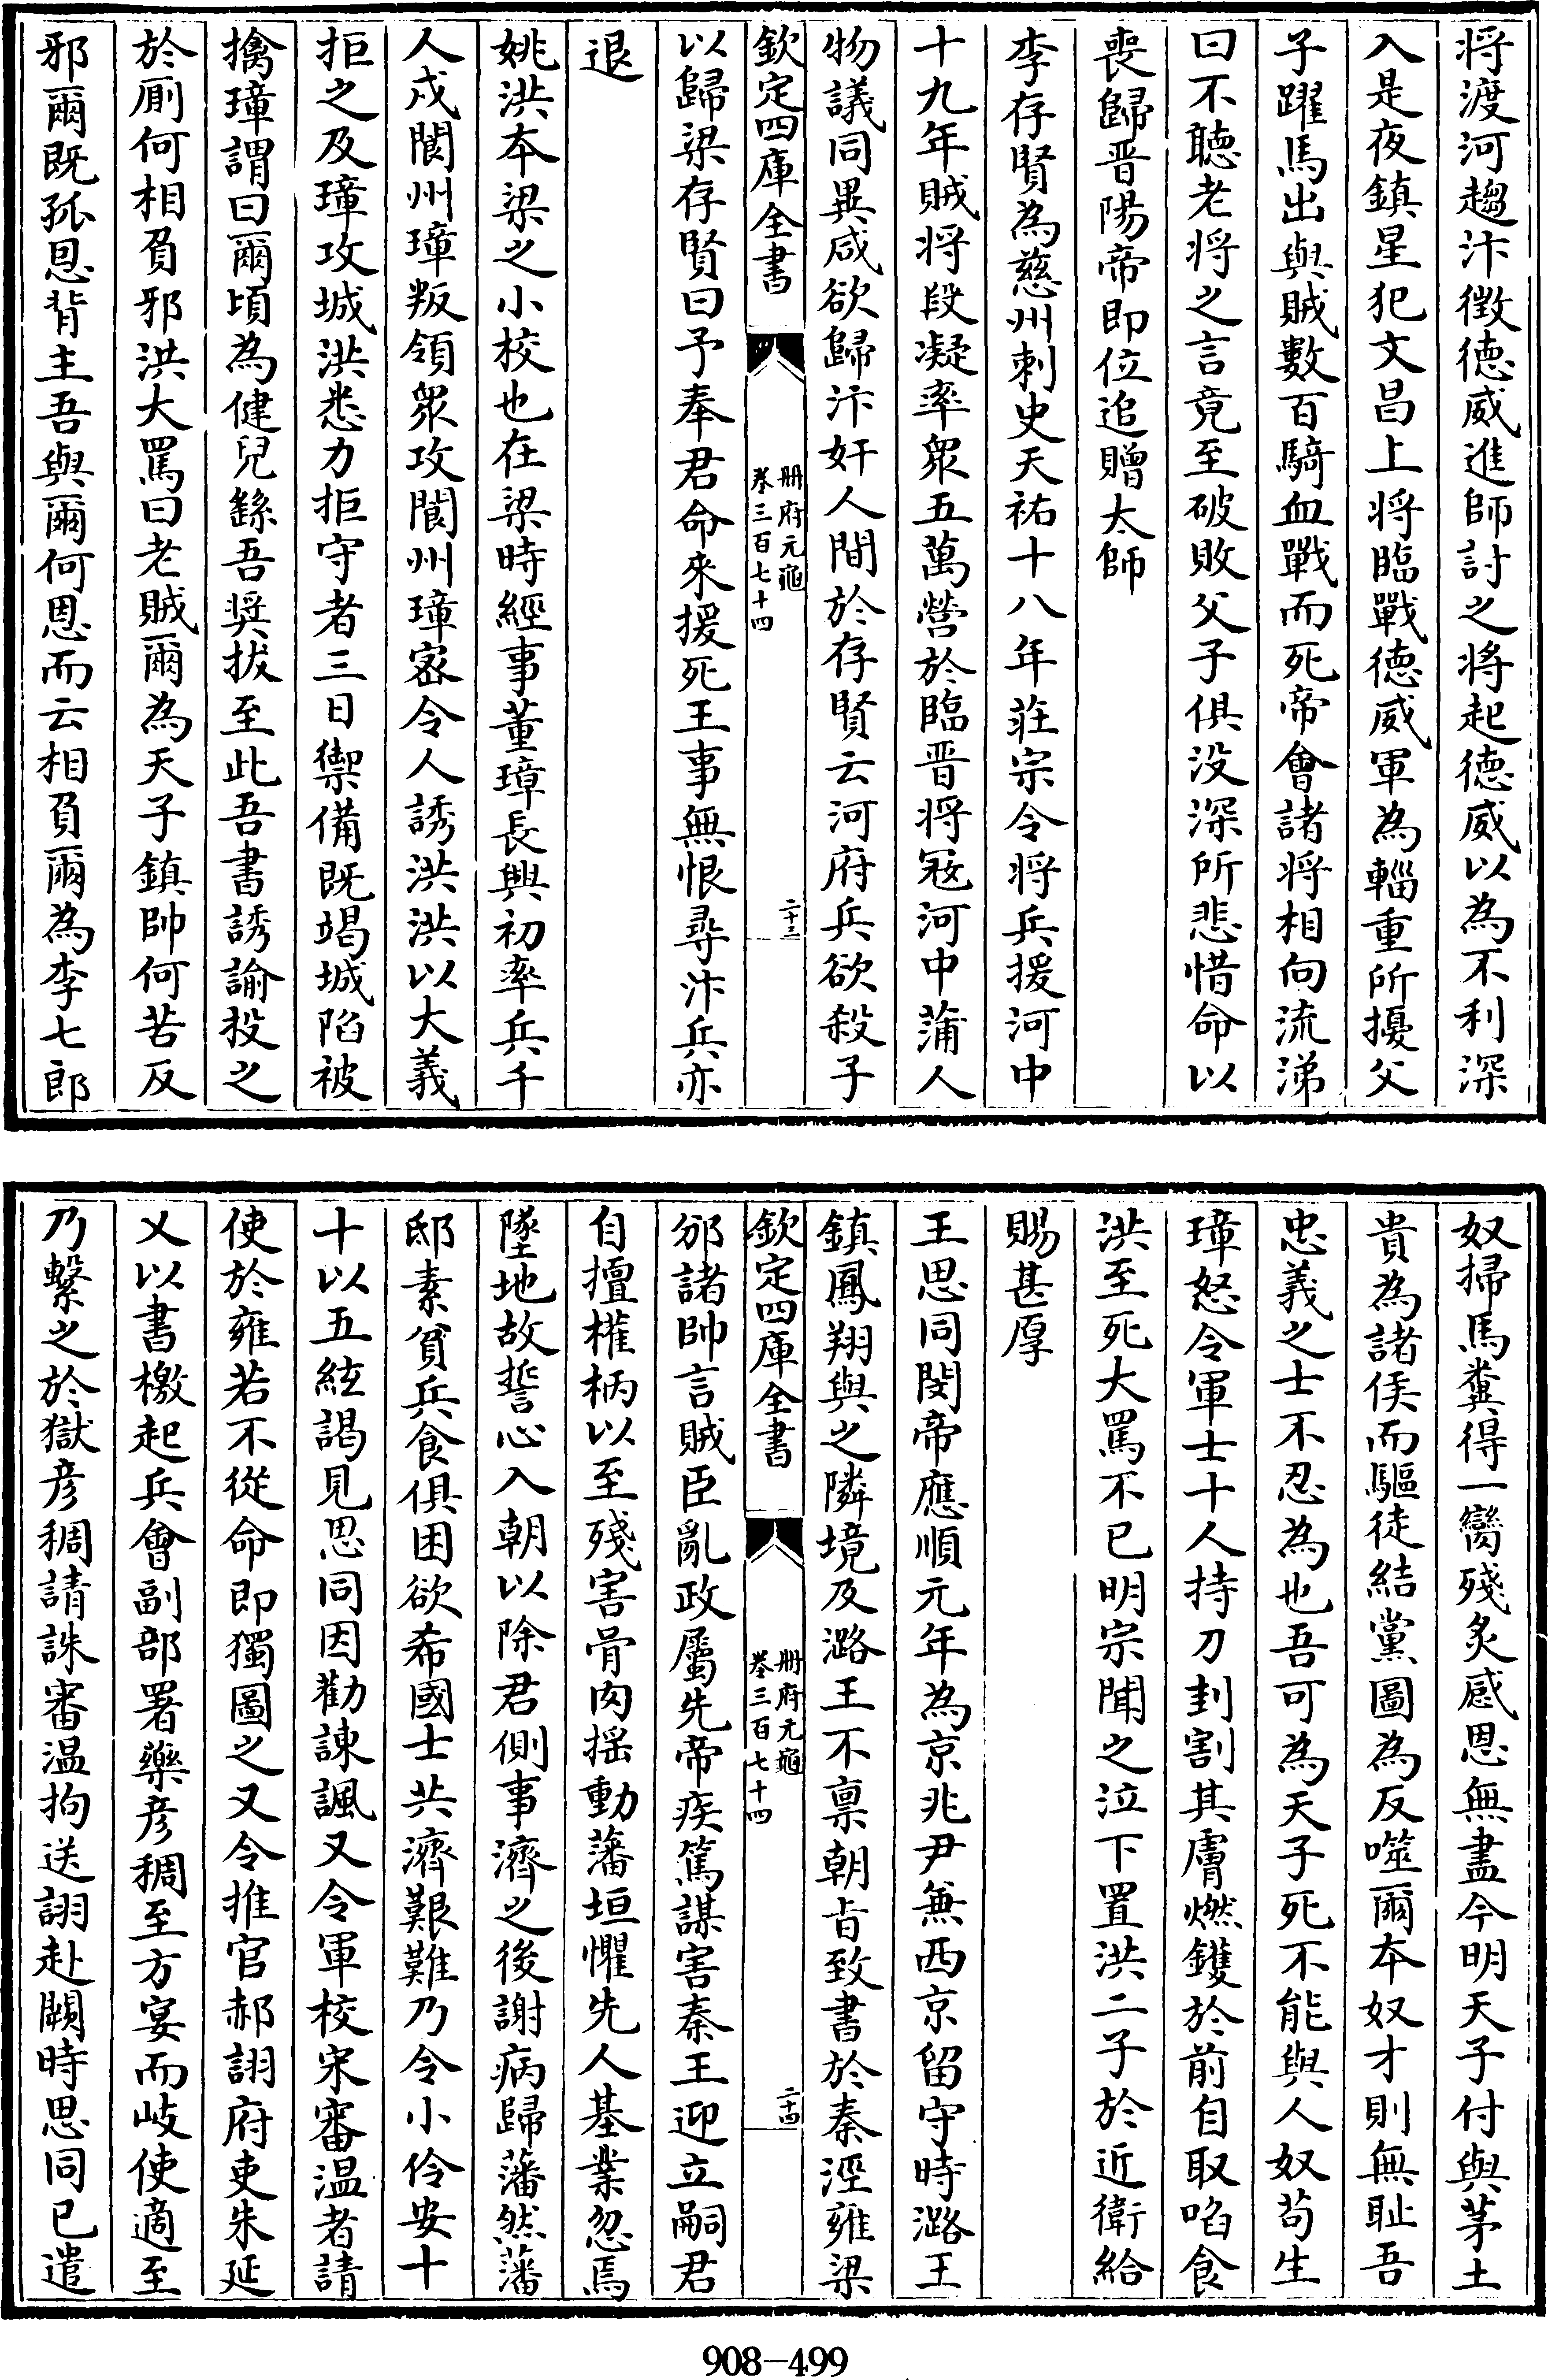 将渡河趨汴徴德威進師討之将起德威以為不利深
入是夜鎮星犯文昌上将臨戰德威軍為輜重所擾父
子躍馬出與賊數百騎血戰而死帝會諸将相向流涕
曰不聽老将之言竟至破敗父子俱没深所悲惜命以
喪歸晋陽帝即位追贈太師
李存賢為慈州刺史天祐十八年莊宗令将兵援河中
十九年賊将段凝率衆五萬營於臨晋将冦河中蒲人
物議同異咸欲歸汴奸人間於存賢云河府兵欲殺子
欽定四庫全書
冊府元龜
卷三百七十四
二十三
以歸梁存賢曰予奉君命來援死王事無恨尋汴兵亦
退
姚洪本梁之小校也在梁時經事董璋長興初率兵千
人戍閬州璋叛領衆攻閬州璋宻令人誘洪洪以大義
拒之及璋攻城洪悉力拒守者三日禦備既竭城陷被
擒璋謂曰爾頃為健兒繇吾奬拔至此吾書誘諭投之
於厠何相負邪洪大罵曰老賊爾為天子鎮帥何苦反
邪爾既孤恩背主吾與爾何恩而云相負爾為李七郎
奴掃馬糞得一臠殘炙感恩無盡今明天子付與茅土
貴為諸侯而驅徒結黨圖為反噬爾本奴才則無耻吾
忠義之士不忍為也吾可為天子死不能與人奴苟生
璋怒令軍士十人持刀刲割其膚燃鑊於前自取啗食
洪至死大罵不已明宗聞之泣下置洪二子於近衛給
賜甚厚
王思同閔帝應順元年為京兆尹兼西京留守時潞王
鎮鳳翔與之隣境及潞王不禀朝㫖致書於秦涇雍梁
欽定四庫全書
冊府元龜
卷三百七十四
二十四
邠諸帥言賊臣亂政屬先帝疾篤謀害秦王迎立嗣君
自擅權柄以至殘害骨肉揺動藩垣懼先人基業忽焉
墜地故誓心入朝以除君側事濟之後謝病歸藩然藩
邸素貧兵食俱困欲希國士共濟艱難乃令小伶安十
十以五絃謁見思同因勸諫諷又令軍校宋審温者請
使於雍若不從命即獨圖之又令推官郝詡府吏朱延
乂以書檄起兵會副部署藥彦稠至方宴而岐使適至
乃繫之於獄彦稠請誅審温拘送詡赴闕時思同已遣
908—499